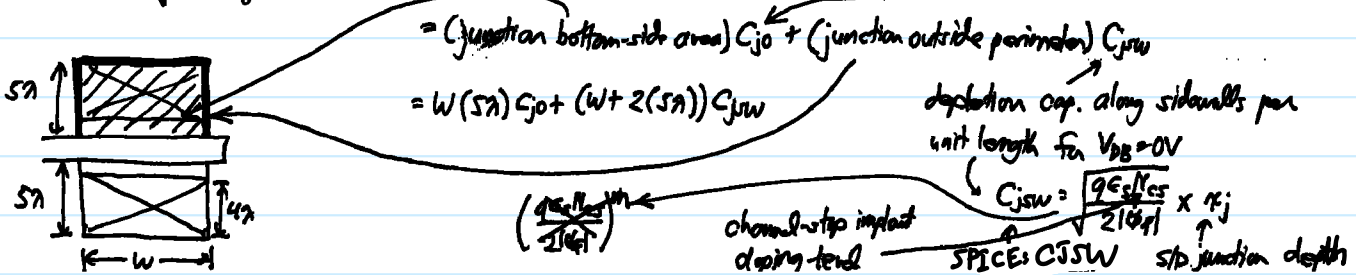 = (junction bottom-side area) Cj0 + (junction outside perimeter) Cjsw
= W(5λ) Cj0 + (W + 2(5λ)) Cjsw
depletion cap. along sidewalls per
unit length for VDB = 0V
5λ
5λ
4λ
W
Cjsw = √(qεsNcs / 2|φf|) × xj
channel-stop implant
doping level
SPICE: CJSW
S/D junction depth